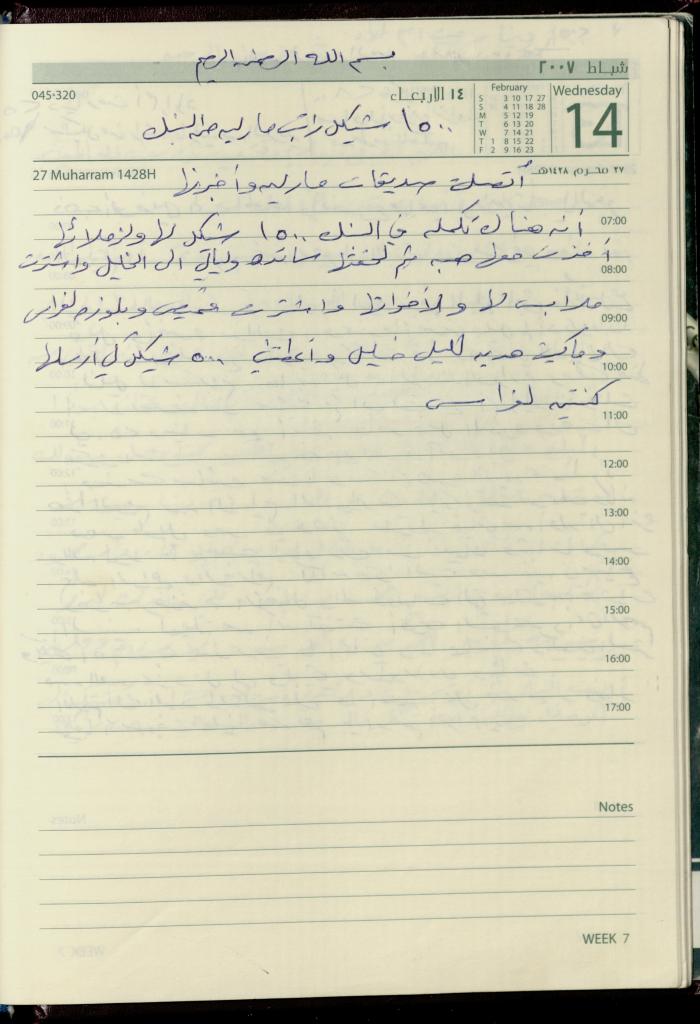 بسم الله الرحمن الرحيم
شباط ٢٠٠٧
045-320
١٤ الاربعاء
February
S 3 10 17 27
S 4 11 18 28
M 5 12 19
T 6 13 20
W 7 14 21
T 1 8 15 22
F 2 9 16 23
Wednesday
14
١٥٠٠ شيكل راتب مارليه من البنك
27 Muharram 1428H
٢٧ محرم ١٤٢٨هـ
أتصلت صديقات مارليه وأخبرنها
07:00
أنه هناك تكمله في البنك ١٥٠٠ شيكل لها ولزملائها
08:00
أخذت معها هبه ثم لحقتها سانده وليالي الى الخليل واشترت
09:00
ملابس لها ولأخواتها واشترت قميص وبلوزه لفراس
10:00
وجاكيت هديه لليل خليل وأعطتني ٥٠٠ شيكل كي أرسلها
11:00
كنتيه لفراس
12:00
13:00
14:00
15:00
16:00
17:00
Notes
WEEK 7